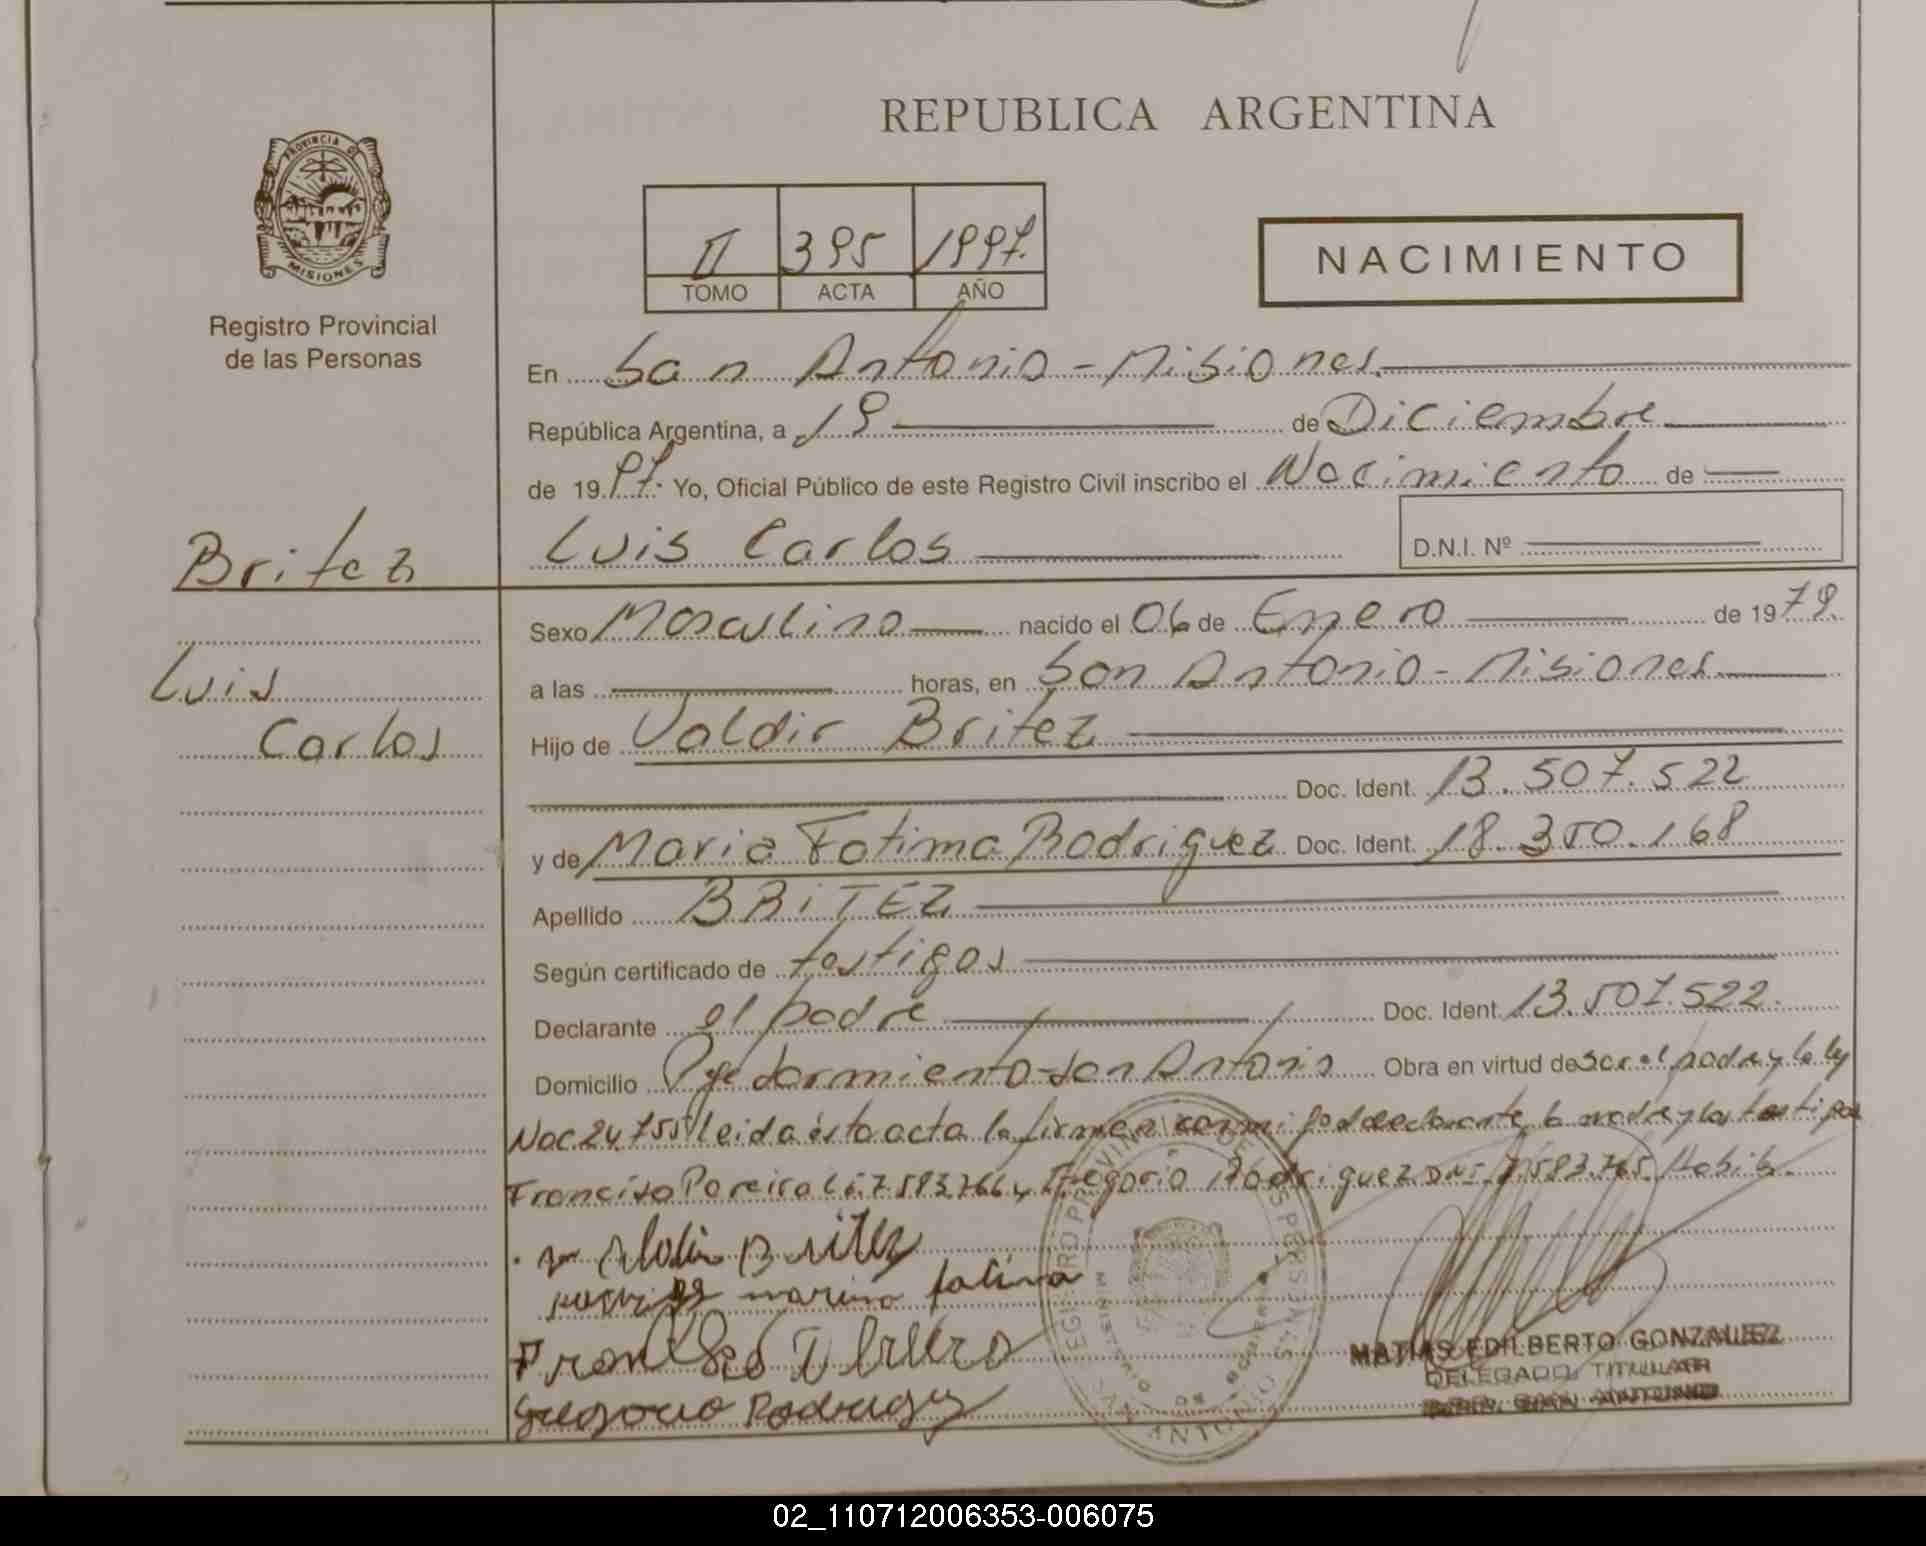 REPUBLICA ARGENTINA
PROVINCIA DE
MISIONES
Registro Provincial
de las Personas
II 395 1997.
TOMO ACTA AÑO
NACIMIENTO
En San Antonio - Misiones.
República Argentina, a 19 de Diciembre
de 1997. Yo, Oficial Público de este Registro Civil inscribo el Nacimiento de
Britez
Luis Carlos D.N.I. Nº
Luis
Carlos
Sexo Masculino nacido el 06 de Enero de 1979.
a las horas, en San Antonio - Misiones
Hijo de Valdir Britez
Doc. Ident. 13.507.522
y de Maria Fatima Rodriguez Doc. Ident. 18.350.168
Apellido BRITEZ
Según certificado de testigos
Declarante el padre Doc. Ident. 13.507.522.
Domicilio Pje dormiento-San Antonio Obra en virtud de ser el padre y la ley
Nac 24.755 leida ésta acta la firman conmigo el declarante la madre y los testigos
Francisco Pereira C.I. 7.583.766 y Gregorio Rodriguez DNI. 7.583.765. Habil.
Valdir Britez
fatima
Francisco
Gregorio Rodriguez
REGISTRO PROVINCIAL DE LAS PERSONAS
MINISTERIO DE GOBIERNO
SAN ANTONIO
MATIAS EDILBERTO GONZALEZ
DELEGADO TITULAR
R.P.P. SAN ANTONIO
02_110712006353-006075